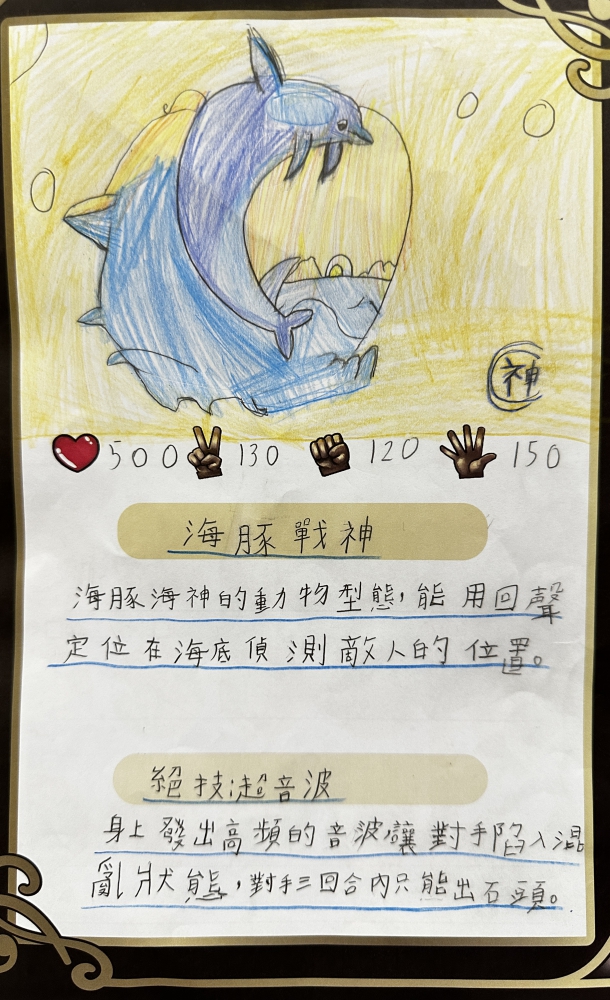 神
500 130 120 150
海豚戰神
海豚海神的動物型態，能用回聲
定位在海底偵測敵人的位置。
絕技：超音波
身上發出高頻的音波，讓對手陷入混
亂狀態，對手三回合內只能出石頭。